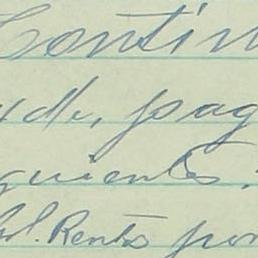 Contin
ude, pag
guientes:
Col. Renta por